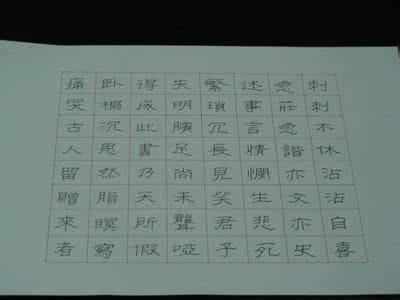 刺刺不休沾沾自喜
忽莊忽諧亦文亦史
述事言情憫生悲死
繁瑣冗長見笑君子
失明臏足尚未聾啞
得成此書乃天所假
卧榻沉思然脂瞑寫
痛哭古人留贈來者